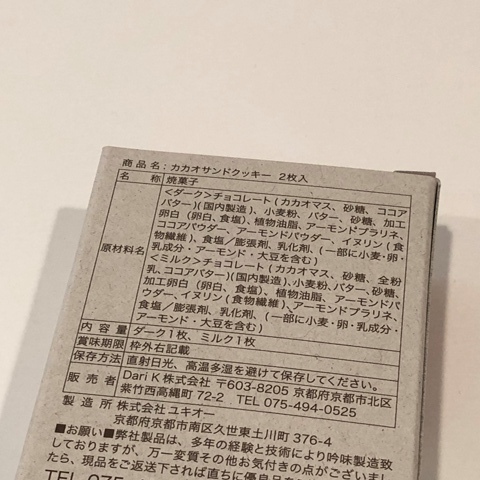 商品名:カカオサンドクッキー 2枚入
名 称 焼菓子
原材料名
<ダーク>チョコレート(カカオマス、砂糖、ココア
バター)(国内製造)、小麦粉、バター、砂糖、加工
卵白(卵白、食塩)、植物油脂、アーモンドプラリネ、
ココアパウダー、アーモンドパウダー、イヌリン(食
物繊維)、食塩/膨張剤、乳化剤、(一部に小麦・卵・
乳成分・アーモンド・大豆を含む)
<ミルク>チョコレート(カカオマス、砂糖、全粉
乳、ココアバター)(国内製造)、小麦粉、バター、砂糖、
加工卵白(卵白、食塩)、植物油脂、アーモンドパ
ウダー、イヌリン(食物繊維)、アーモンドプラリネ、
食塩/膨張剤、乳化剤、(一部に小麦・卵・乳成分・
アーモンド・大豆を含む)
内 容 量 ダーク1枚、ミルク1枚
賞味期限 枠外右記載
保存方法 直射日光、高温多湿を避けて保存してください。
販 売 者 Dari K株式会社 〒603-8205 京都府京都市北区
紫竹西高縄町 72-2 TEL 075-494-0525
製 造 所 株式会社 ユキオー
京都府京都市南区久世東土川町 376-4
■お願い■弊社製品は、多年の経験と技術により吟味製造致
しておりますが、万一変質その他お気付きの点がございまし
たら、現品をご返送下されば直ちに優良品を
TEL 075